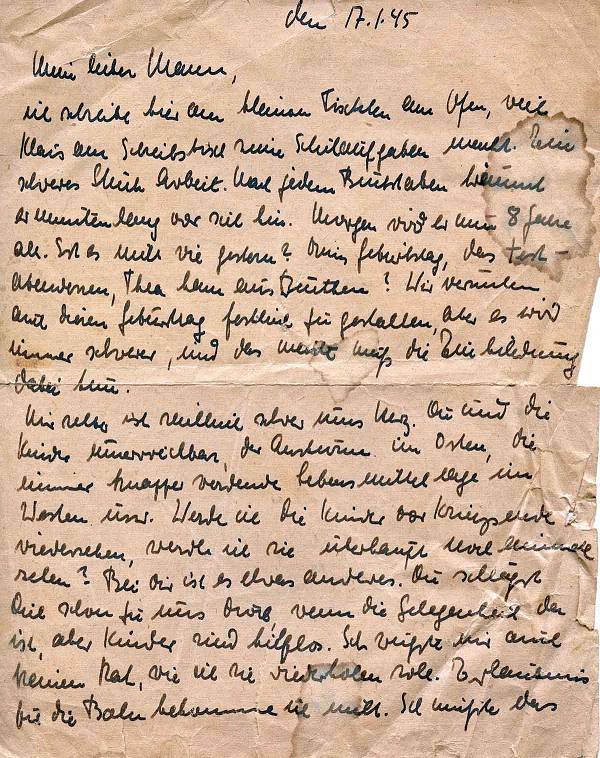 den 17.1.45
Mein lieber Mann,
ich schreibe hier am kleinen Tischchen am Ofen, weil
Klaus am Schreibtisch seine Schulaufgaben macht. Ein
schweres Stück Arbeit. Nach jedem Buchstaben träumt
er minutenlang vor sich hin. Morgen wird er nun 8 Jahre
alt. Ist es nicht wie gestern? Dein Geburtstag, das Fest-
abendessen, Thea kam aus Beuthen? Wir versuchen
auch diesen Geburtstag festlich zu gestalten, aber es wird
immer schwerer, und das meiste muß die Einbildung
dabei tun.
Mir selber ist ziemlich schwer ums Herz. Du und die
Kinder unerreichbar, der Ansturm im Osten, die
immer knapper werdende Lebensmittellage im
Westen usw. Werde ich die Kinder vor Kriegsende
wiedersehen, werde ich sie überhaupt noch einmal
sehen? Bei Dir ist es etwas anderes. Du schlägst
Dich schon zu uns durch, wenn die Gelegenheit da
ist, aber Kinder sind hilflos. Ich wüßte mir auch
keinen Rat, wie ich sie wiederholen soll. Erlaubnis
für die Bahn bekomme ich nicht. Ich müßte das